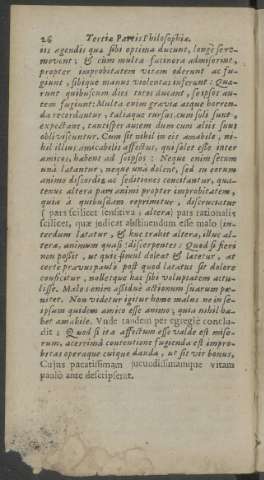 26 Tertia Partis Philosophiæ
iis agendis quæ sibi optima ducunt, longè se re-
movent; & cùm multa facinora admiserint,
propter improbitatem vitam oderunt ac fu-
giunt, sibique manus violentas inferunt. Quæ-
runt quibuscum dies totos ducant, seipsos au-
tem fugiunt: Multa enim gravia atque horren-
da recordantur, taliaque rursus cùm soli sunt,
expectant, tantisper autem dum cum aliis sunt
obliviscuntur. Cùm sit nihil in eis amabile, ni-
hil illius amicabilis affectus, qui solet esse inter
amicos, habent ad seipsos: Neque enim secum
unà lætantur, neque unà dolent, sed in eorum
animo discordiæ ac seditiones concitantur, qua-
tenus altera pars animi propter improbitatem,
quia à quibusdam reprimitur, discruciatur
(pars scilicet sensitiva; altera) pars rationalis
scilicet, quæ judicat abstinendum esse malo (in-
terdum lætatur, & huc trahit altera, illuc al-
tera, animum quasi discerpentes: Quod si fieri
non possit, ut quis simul doleat & lætetur, at
certè pravus paulò post quod lætatus sit dolore
conficitur, nolletque has sibi voluptates accu-
isse. Malos enim assiduè actionum suarum pœ-
nitet. Non videtur igitur homo malus ne in se-
ipsum quidem amico esse animo, quia nihil ha-
bet amabile. Unde tandem per egregiè conclu-
dit: Quod si ita affectum esse valde est mise-
rum, acerrimâ contentione fugienda est impro-
bitas operaque cuique danda, ut sit vir bonus,
Cujus pacatissimam jucundissimamque vitam
paulò ante descripserat.